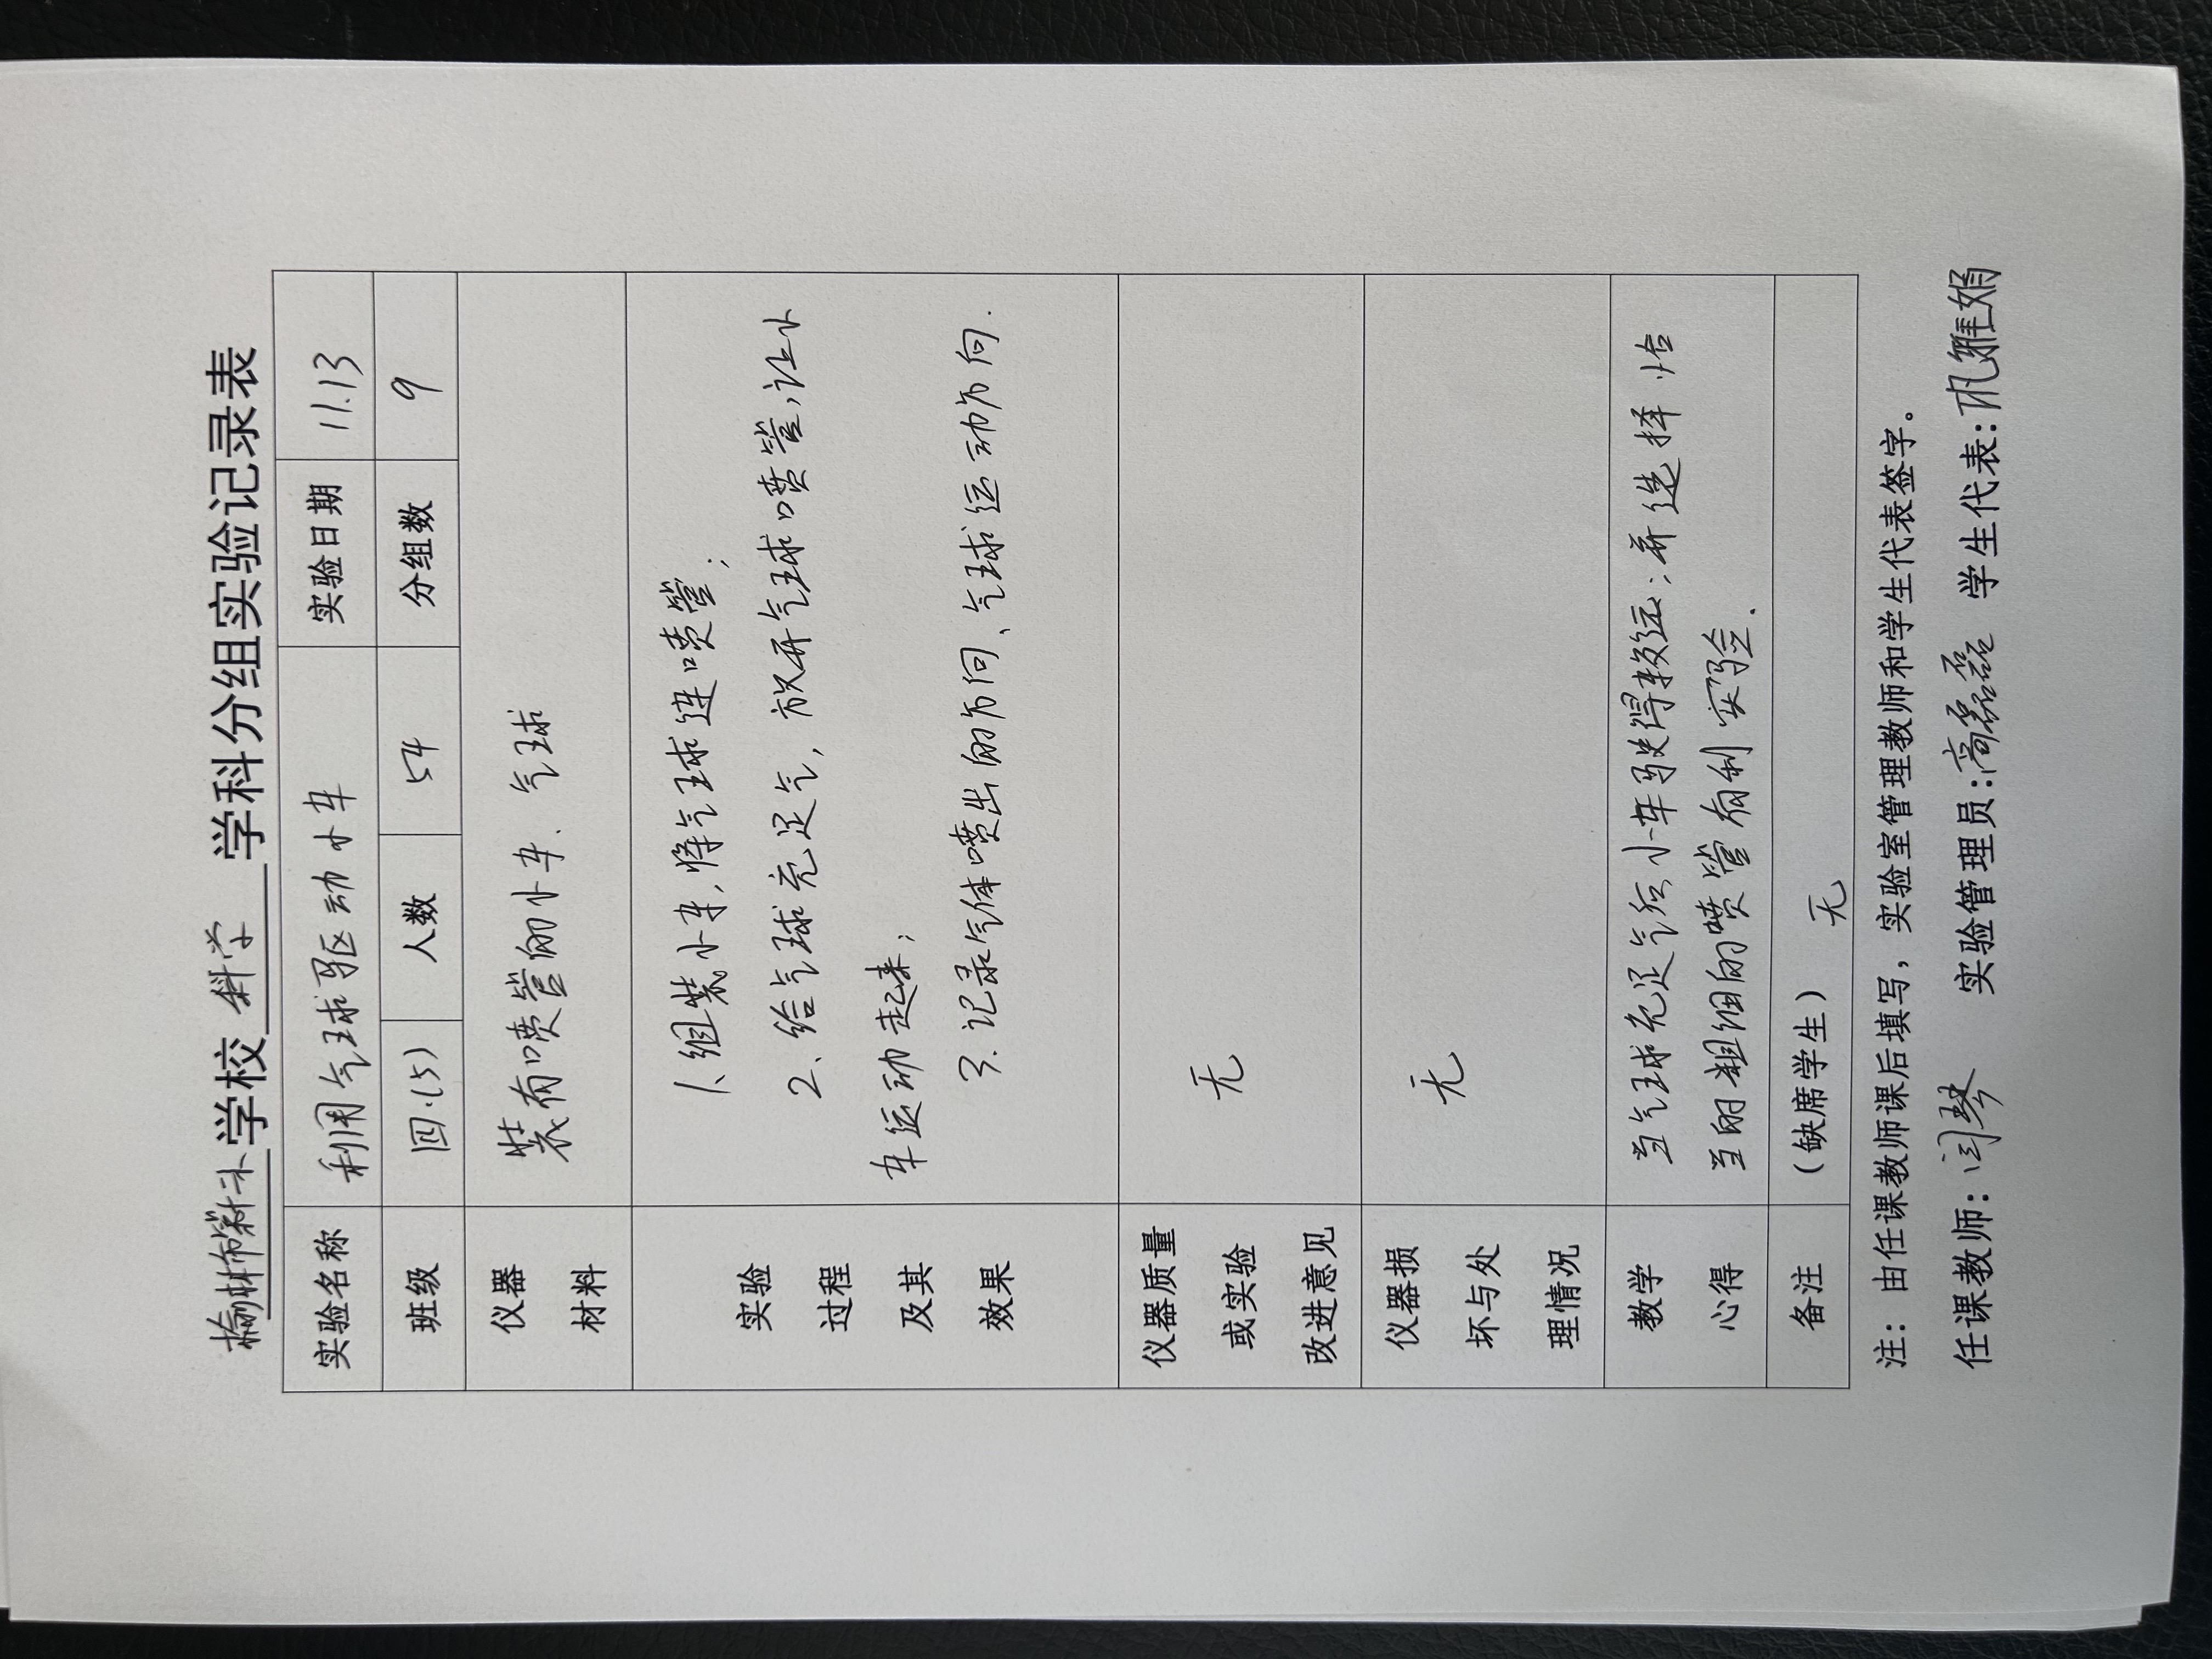 榆林市第小学校 科学 学科分组实验记录表
实验名称 利用气球驱动小车 实验日期 11.13
班级 四.(5) 人数 54 分组数 9
仪器材料 装有喷管的小车、气球
实验过程及其效果
1、组装小车,将气球连喷管;
2、给气球充足气,放开气球喷管,让小
车运动起来;
3.记录气体喷出的方向、气球运动方向.
仪器质量或实验改进意见 无
仪器损坏与处理情况 无
教学心得
当气球充足气后小车驶得较远;并选择恰
当的粗细的喷管有利实验.
备注 (缺席学生) 无
注:由任课教师课后填写,实验室管理教师和学生代表签字。
任课教师:闫琴 实验管理员:高磊磊 学生代表:雅娟